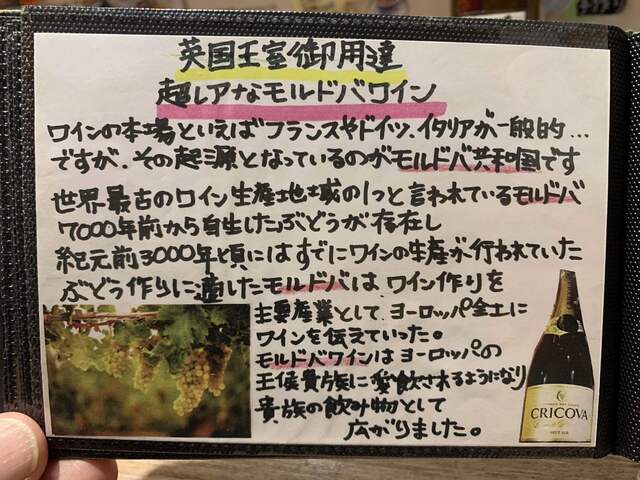 英国王室御用達
超レアなモルドバワイン
ワインの本場といえばフランスやドイツ、イタリアが一般的…
ですが、その起源となっているのがモルドバ共和国です
世界最古のワイン生産地域の1つと言われているモルドバ
7000年前から自生したぶどうが存在し
紀元前3000年頃にはすでにワインの生産が行われていた
ぶどう作りに適したモルドバは、ワイン作りを
主要産業として、ヨーロッパ全土に
ワインを伝えていった。
モルドバワインはヨーロッパの
王侯貴族に愛飲されるようになり
貴族の飲み物として
広がりました。
CRICOVA